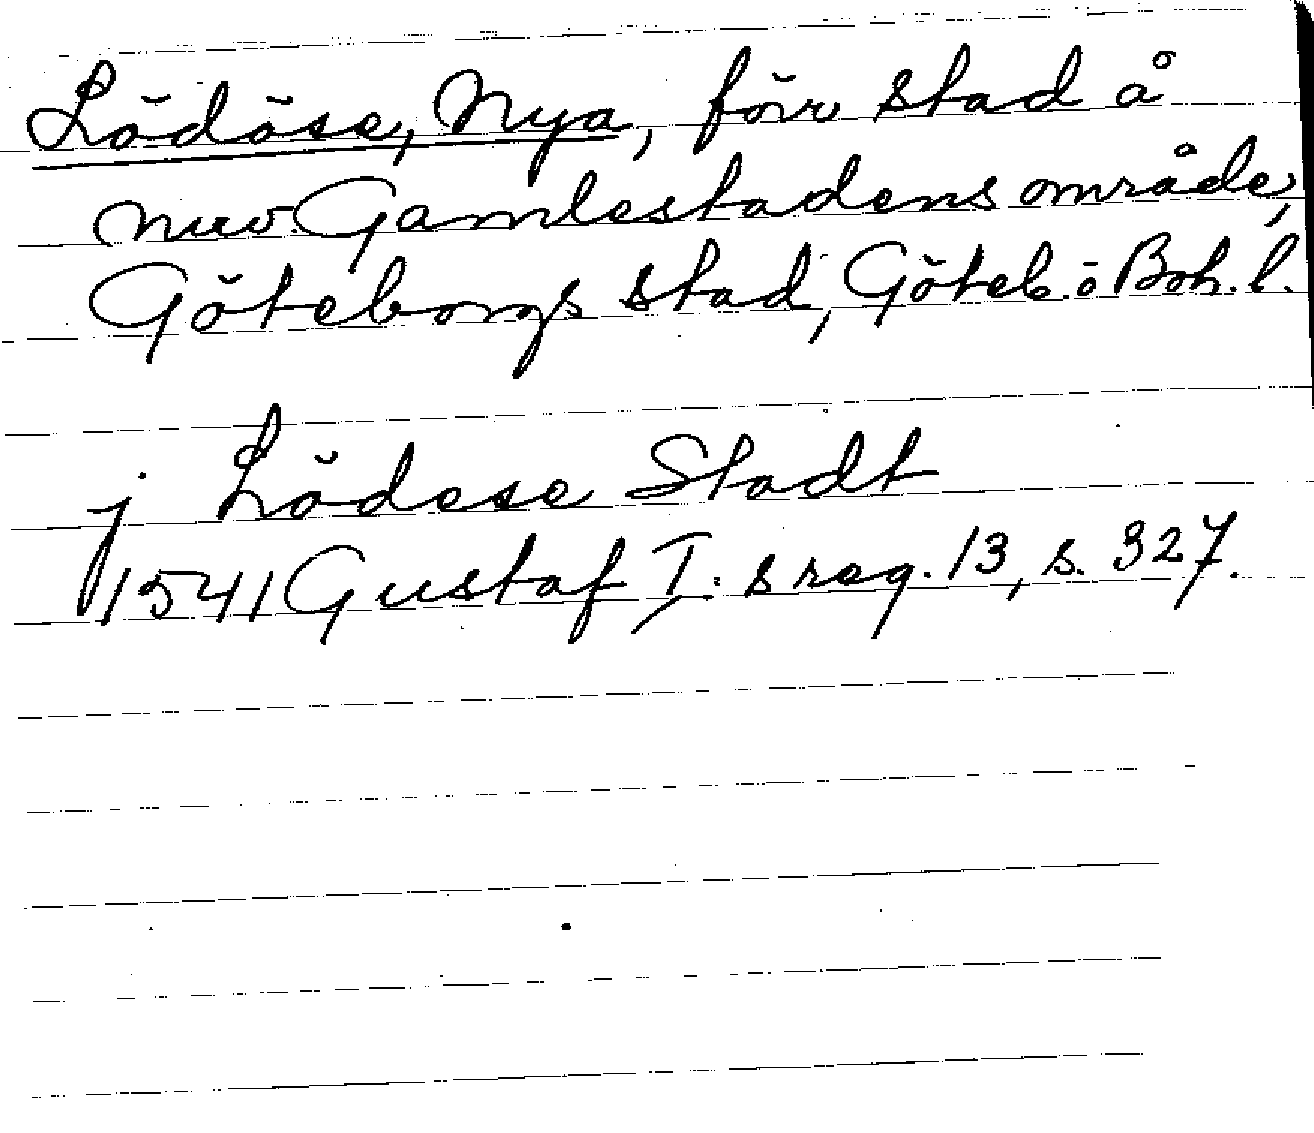 Lödöse, Nya, förr stad å
nuv. Gamlestadens område,
Göteborgs stad, Göteb. o Boh. l.
j Lödese Stadt
1541 Gustaf I:s reg. 13, s. 327.